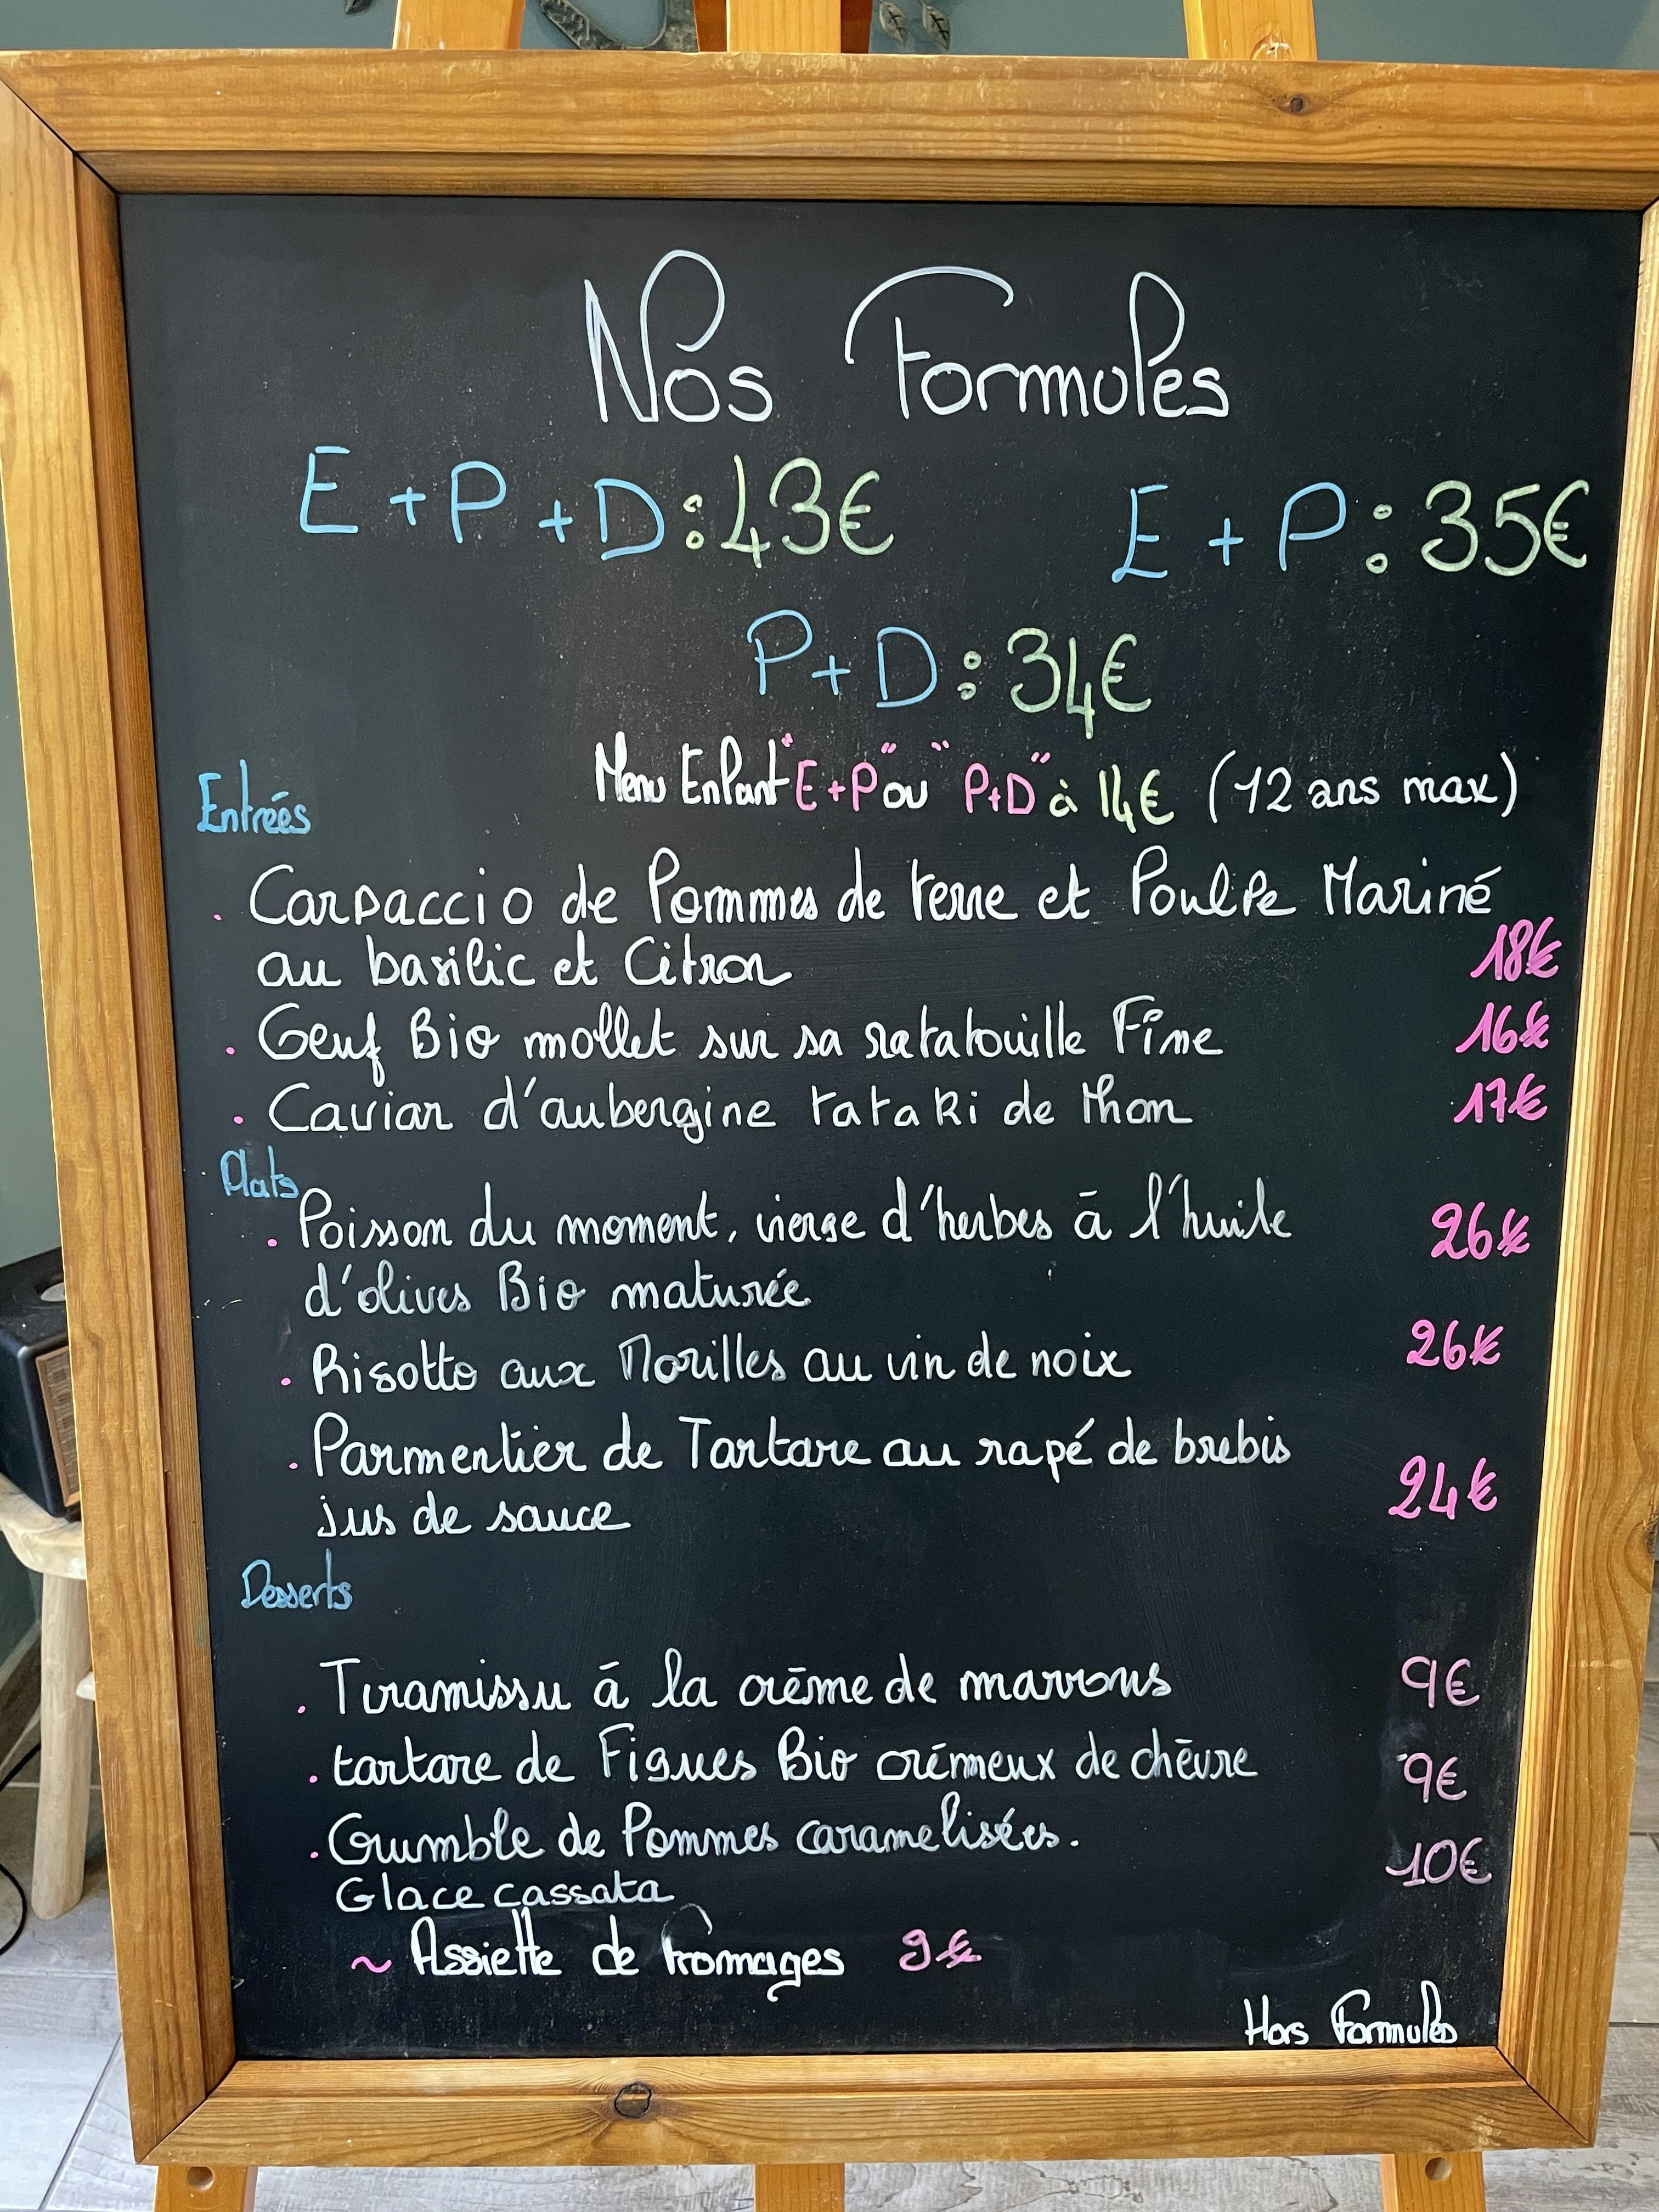 Nos Formules
E + P + D : 43€
E + P : 35€
P + D : 34€
Menu Enfant "E+P" ou "P+D" à 14€ (12 ans max)
Entrées
. Carpaccio de Pommes de terre et Poulpe Mariné
au basilic et Citron 18€
. Oeuf Bio mollet sur sa ratatouille Fine 16€
. Caviar d'aubergine tataki de thon 17€
Plats
. Poisson du moment, vierge d'herbes à l'huile 26€
d'olives Bio maturée
. Risotto aux Morilles au vin de noix 26€
. Parmentier de Tartare au rapé de brebis
jus de sauce 24€
Desserts
. Tiramissu à la crème de marrons 9€
. tartare de Figues Bio crémeux de chèvre 9€
. Crumble de Pommes caramelisées.
Glace cassata 10€
~ Assiette de fromages 9€
Hors Formules